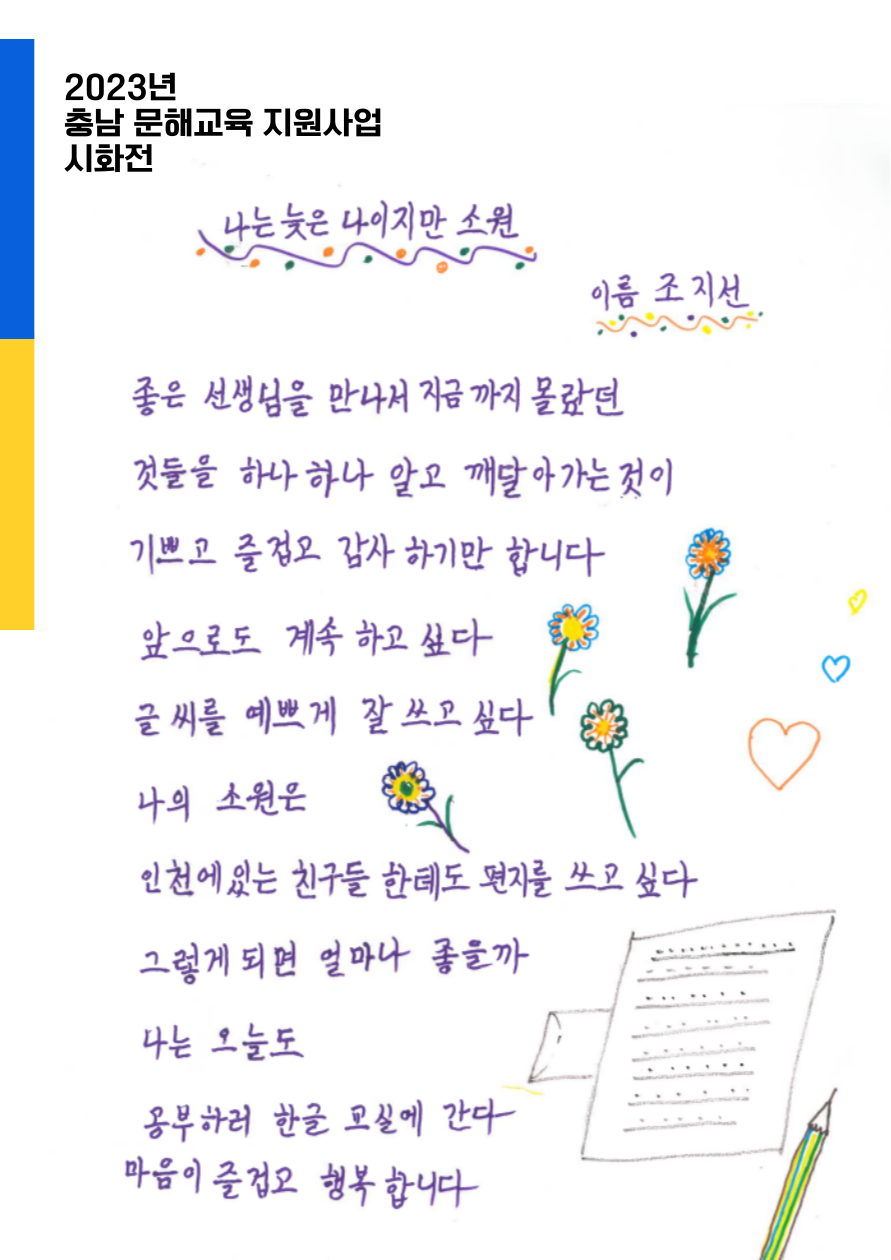 2023년
충남 문해교육 지원사업
시화전
나는 늦은 나이지만 소원
이름 조지선
좋은 선생님을 만나서 지금까지 몰랐던
것들을 하나하나 알고 깨달아가는것이
기쁘고 즐겁고 감사하기만 합니다
앞으로도 계속하고 싶다
글씨를 예쁘게 잘 쓰고 싶다
나의 소원은
인천에있는 친구들 한테도 편지를 쓰고 싶다
그렇게 되면 얼마나 좋을까
나는 오늘도
공부하러 한글 교실에 간다
마음이 즐겁고 행복합니다